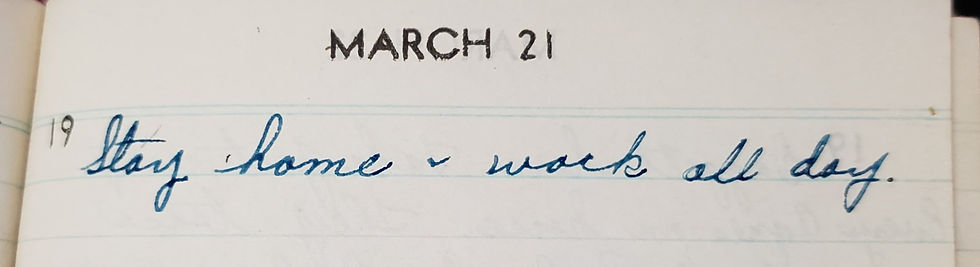 MARCH 21
19 Stay home & work all day.